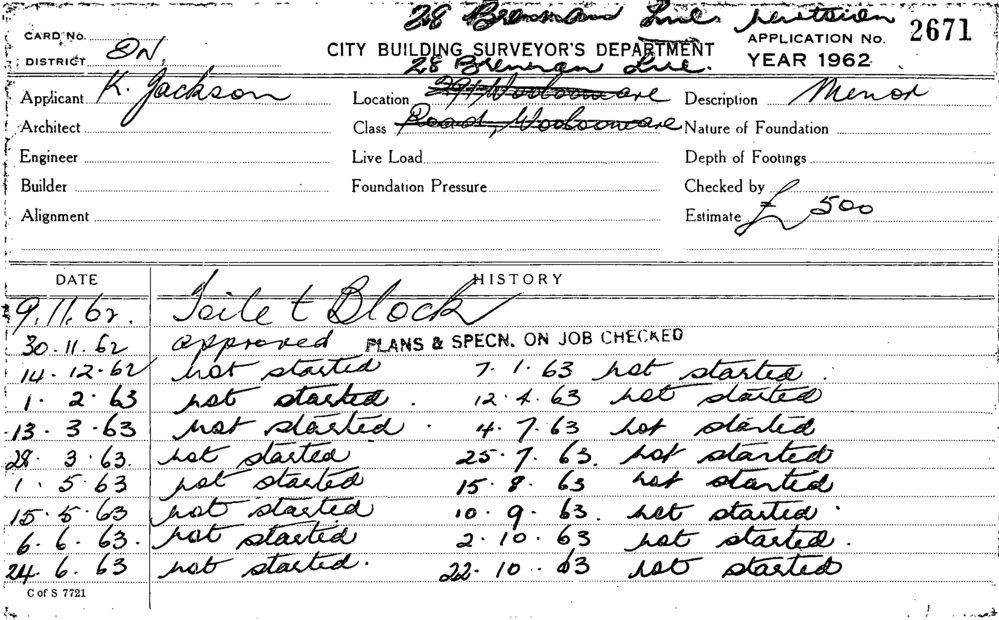 28 Brennan Line
CARD No.
DISTRICT ON,
CITY BUILDING SURVEYOR'S DEPARTMENT
28 Brennan Line.
APPLICATION No. 2671
YEAR 1962
Applicant K. Jackson Location Description Minor
Architect Class Road, Woolooware Nature of Foundation
Engineer Live Load Depth of Footings
Builder Foundation Pressure Checked by
Alignment Estimate £ 500
DATE HISTORY
9.11.62. Toilet Block
30.11.62 approved PLANS & SPECN. ON JOB CHECKED
14.12.62 not started 7.1.63 not started.
1.2.63 not started. 12.4.63 not started
13.3.63 not started. 4.7.63 not started
28.3.63. not started 25.7.63. not started
1.5.63 not started 15.8.63 not started
15.5.63 not started 10.9.63. not started.
6.6.63. not started 2.10.63 not started.
24.6.63 not started. 22.10.63 not started
C of S 7721